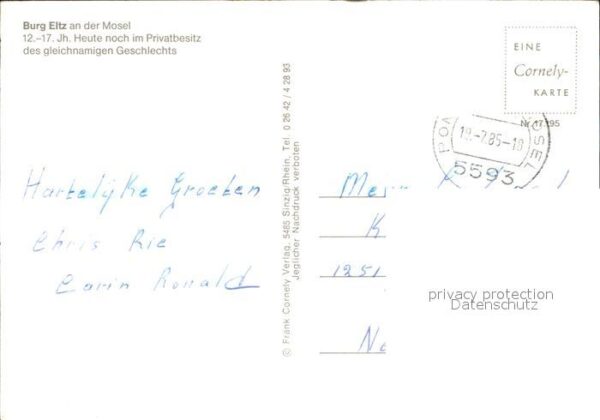 Burg Eltz an der Mosel
12.–17. Jh. Heute noch im Privatbesitz
des gleichnamigen Geschlechts
EINE
Cornely-
KARTE
5593
Hartelijke Groeten
Chris Rie
Carin Ronald
© Frank Cornely Verlag, 5485 Sinzig/Rhein, Tel. 0 26 42 / 4 28 93
Jeglicher Nachdruck verboten
K
1251
privacy protection
Datenschutz